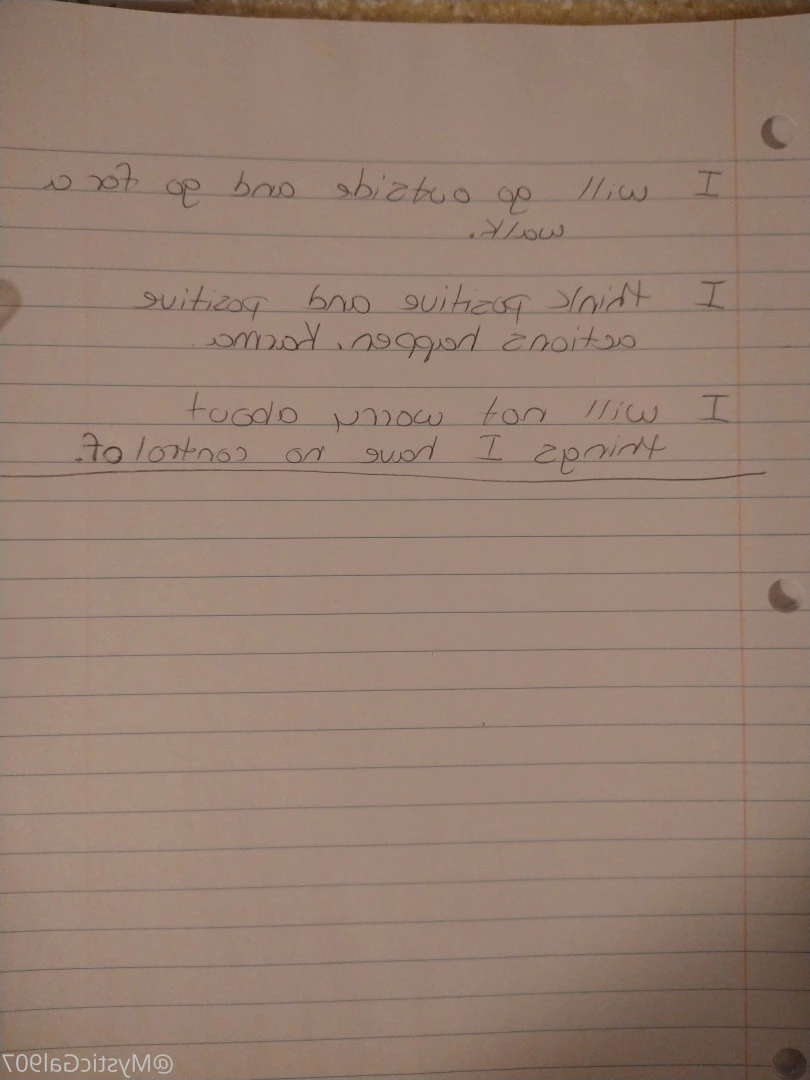 I will go outside and go for a
walk.
I think positive and positive
actions happen. Karma
I will not worry about
things I have no control of.
@MysticGal907